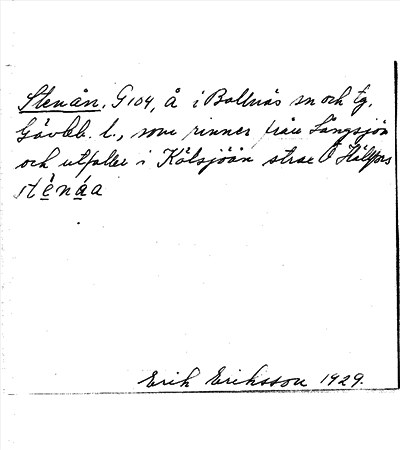 Stenån, G104, å i Bollnäs sn och tg,
Gävleb. l., som rinner från Långsjön
och utfaller i Kölsjöån strax Ö Hålfors
stènáa
Erik Eriksson 1929.